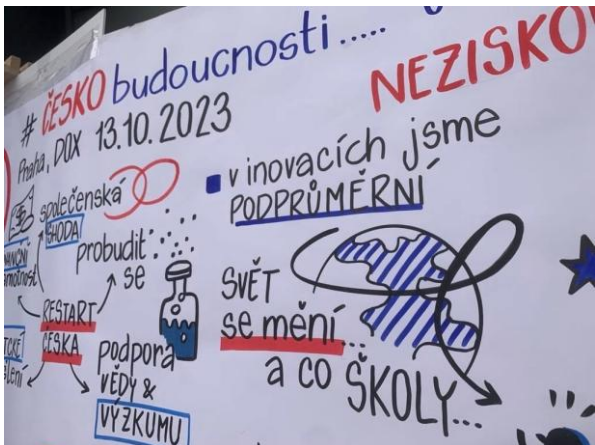 # ČESKO budoucnosti.....
Praha, DOX 13.10.2023
společenská
SHODA
probudit
se
RESTART
ČESKA
podpora
VĚDY &
VÝZKUMU
v inovacích jsme
PODPRŮMĚRNÍ
SVĚT
se mění...
a co ŠKOLY...